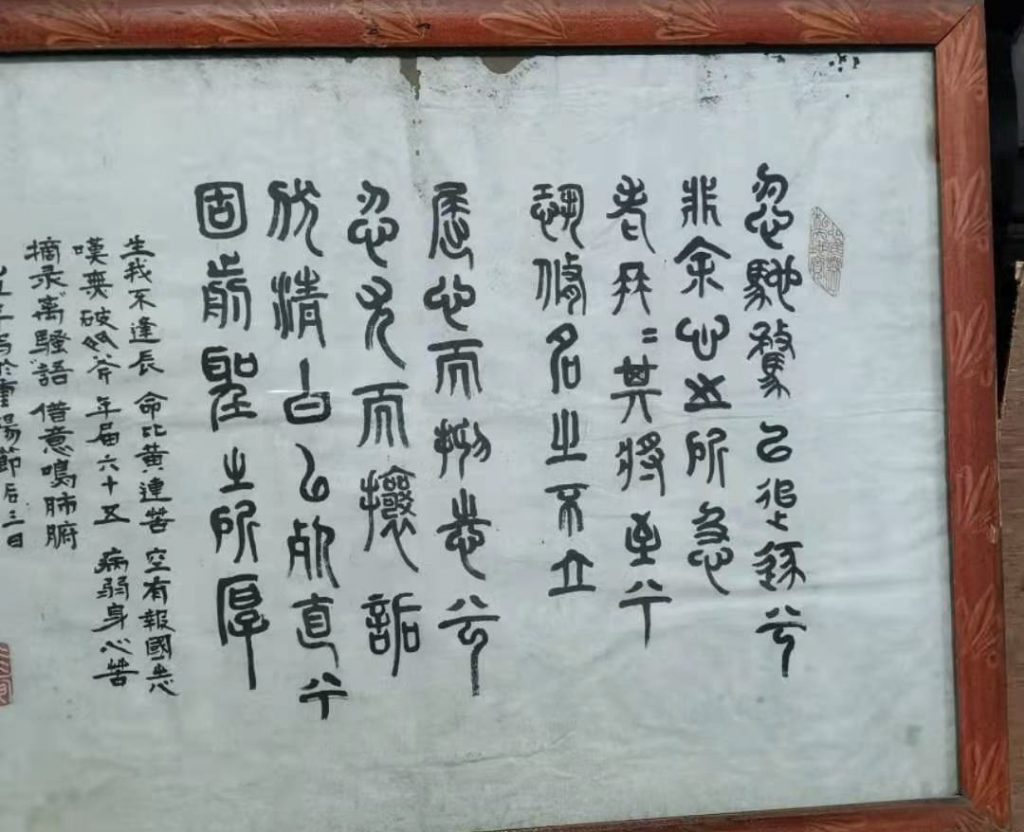 忽馳騖以追逐兮
非余心之所急
老冉〻其將至兮
恐脩名之不立
屈心而抑志兮
忍尤而攘詬
伏清白以死直兮
固前聖之所厚
生我不逢辰 命比黃連苦 空有報國志
嘆無破斧 年届六十五 病弱身心苦
摘录离騷語 借意鳴肺腑
年寫於重陽節后三日